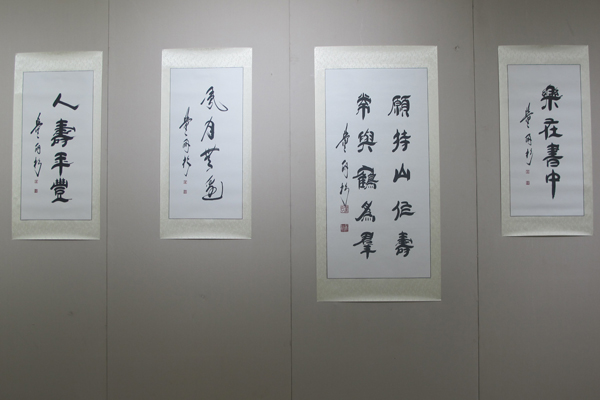 人壽年豐
風月無邊
願持山作壽
常與鶴為羣
樂在書中